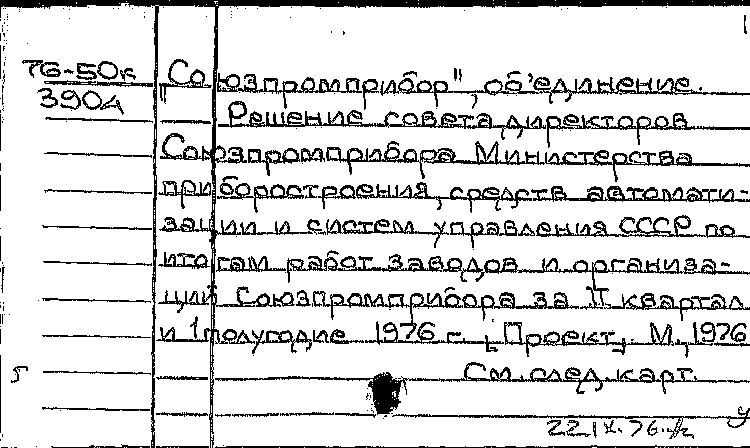 76-50к "Союзпромприбор", об'единение.
390А Решение совета директоров
Союзпромприбора Министерства
приборостроения, средств автомати-
зации и систем управления СССР по
итогам работ заводов и организа-
ций Союзпромприбора за II квартал
и 1 полугодие 1976 г. [Проект]. М., 1976
См. след. карт.
22.IX.76.